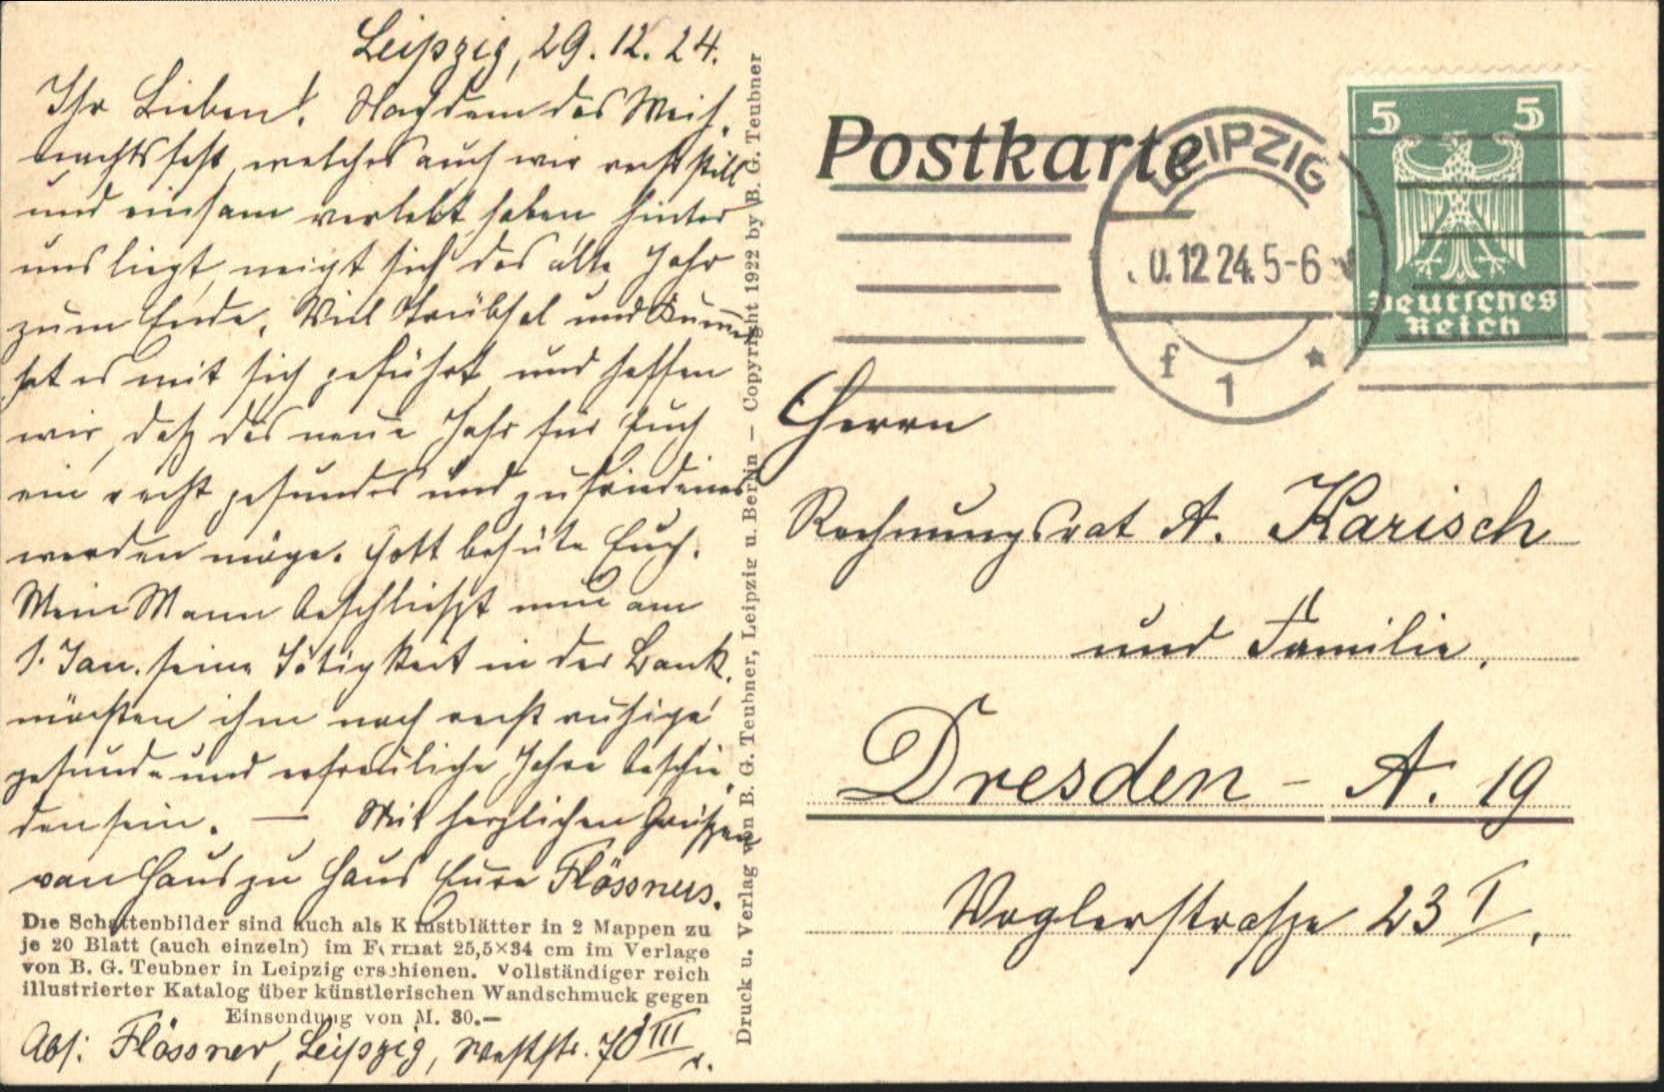 Leipzig, 29.12.24.
Ihr Lieben! Nachdem das Weih-
nachtsfest, welches auch wir recht still
und einsam verlebt haben, hinter
uns liegt, neigt sich das alte Jahr
zum Ende. Viel Trübsal und Kummer
hat es mit sich geführt und hoffen
wir, daß das neue Jahr für Euch
ein recht gesundes und zufriedenes
werden möge. Gott behüte Euch.
Mein Mann beschließt nun am
1. Jan. seine Tätigkeit in der Bank,
möchten ihm noch recht ruhige,
gesunde und erfreuliche Jahre beschie-
den sein. — Mit herzlichen Grüßen
von Haus zu Haus Eure Flössners.
Die Schattenbilder sind auch als Kunstblätter in 2 Mappen zu
je 20 Blatt (auch einzeln) im Format 25,5×34 cm im Verlage
von B. G. Teubner in Leipzig erschienen. Vollständiger reich
illustrierter Katalog über künstlerischen Wandschmuck gegen
Einsendung von M. 30.—
Abs: Flössner, Leipzig, Weststr. 70 III r.
Druck u. Verlag von B. G. Teubner, Leipzig u. Berlin — Copyright 1922 by B. G. Teubner
Postkarte
LEIPZIG
0.12.24. 5-6
f 1 *
5 5
Deutsches
Reich
Herrn
Rechnungsrat A. Karisch
und Familie,
Dresden - A. 19
Voglerstraße 23 I.